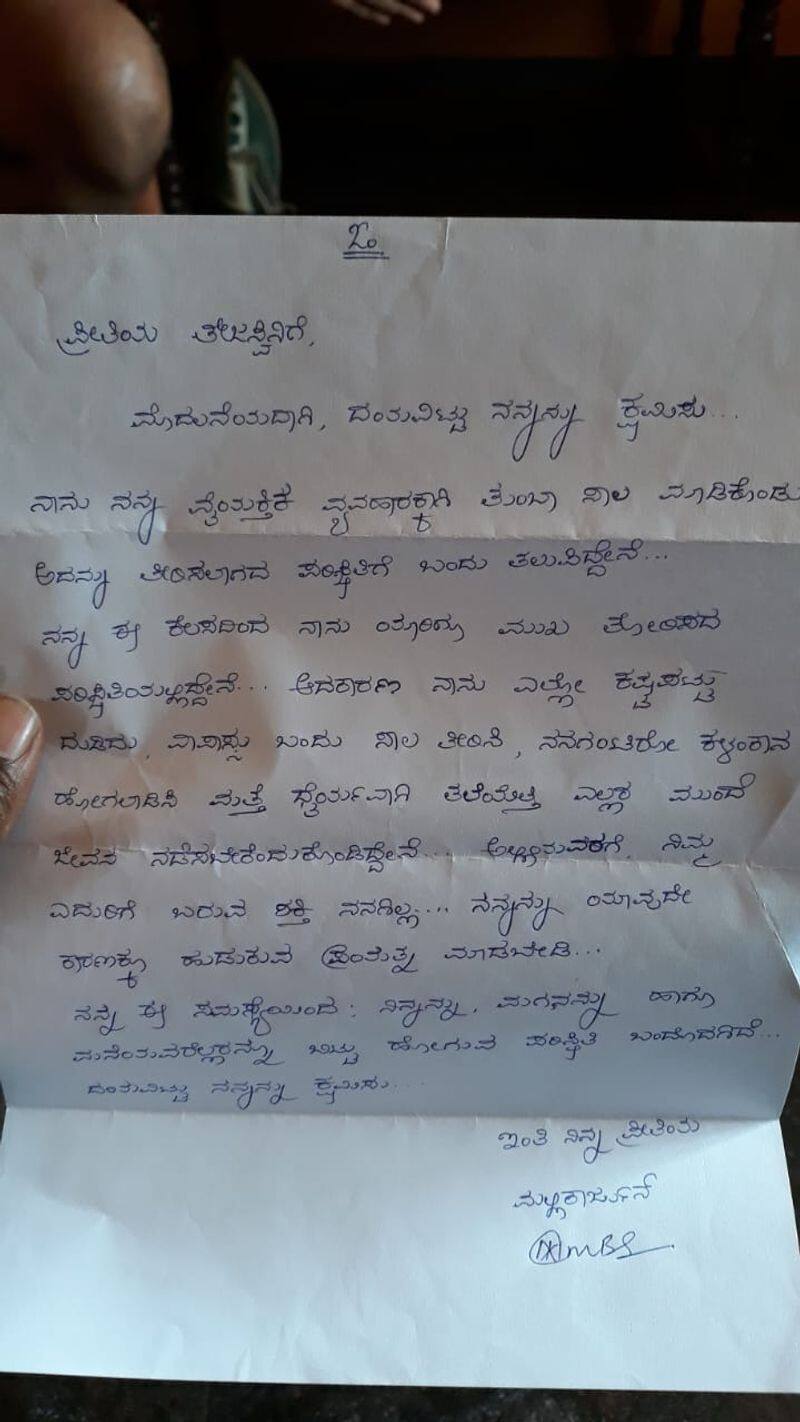 ಓಂ
ಪ್ರೀತಿಯ ತೇಜಸ್ವಿನಿಗೆ,
ಮೊದಲನೆಯದಾಗಿ, ದಯವಿಟ್ಟು ನನ್ನನ್ನು ಕ್ಷಮಿಸು...
ನಾನು ನನ್ನ ವೈಯಕ್ತಿಕ ವ್ಯವಹಾರಕ್ಕಾಗಿ ತುಂಬಾ ಸಾಲ ಮಾಡಿಕೊಂಡು
ಅದನ್ನು ತೀರಿಸಲಾಗದ ಪರಿಸ್ಥಿತಿಗೆ ಬಂದು ತಲುಪಿದ್ದೇನೆ...
ನನ್ನ ಈ ಕೆಲಸದಿಂದ ನಾನು ಯಾರಿಗೂ ಮುಖ ತೋರಿಸದ
ಪರಿಸ್ಥಿತಿಯಲ್ಲಿದ್ದೇನೆ... ಆದಕಾರಣ ನಾನು ಎಲ್ಲೋ ಕಷ್ಟಪಟ್ಟು
ದುಡಿದು, ವಾಪಾಸ್ಸು ಬಂದು ಸಾಲ ತೀರಿಸಿ, ನನಗಂಟಿರೋ ಕಳಂಕಾನ
ಹೋಗಲಾಡಿಸಿ ಮತ್ತೆ ಧೈರ್ಯವಾಗಿ ತಲೆಯೆತ್ತಿ ಎಲ್ಲರ ಮುಂದೆ
ಜೀವನ ನಡೆಸಬೇಕೆಂದುಕೊಂಡಿದ್ದೇನೆ... ಅಲ್ಲೀನುವರೆಗೆ, ನಿಮ್ಮ
ಎದುರಿಗೆ ಬರುವ ಶಕ್ತಿ ನನಗಿಲ್ಲ.... ನನ್ನನ್ನು ಯಾವುದೇ
ಕಾರಣಕ್ಕೂ ಹುಡುಕುವ ಪ್ರಯತ್ನ ಮಾಡಬೇಡಿ...
ನನ್ನ ಈ ಸಮಸ್ಯೆಯಿಂದ; ನಿನ್ನನ್ನು, ಮಗನನ್ನು ಹಾಗೂ
ಮನೆಯವರೆಲ್ಲರನ್ನೂ ಬಿಟ್ಟು ಹೋಗುವ ಪರಿಸ್ಥಿತಿ ಬಂದೊದಗಿದೆ...
ದಯವಿಟ್ಟು ನನ್ನನ್ನು ಕ್ಷಮಿಸು...
ಇಂತಿ ನಿನ್ನ ಪ್ರೀತಿಯ
ಮಲ್ಲಿಕಾರ್ಜುನ